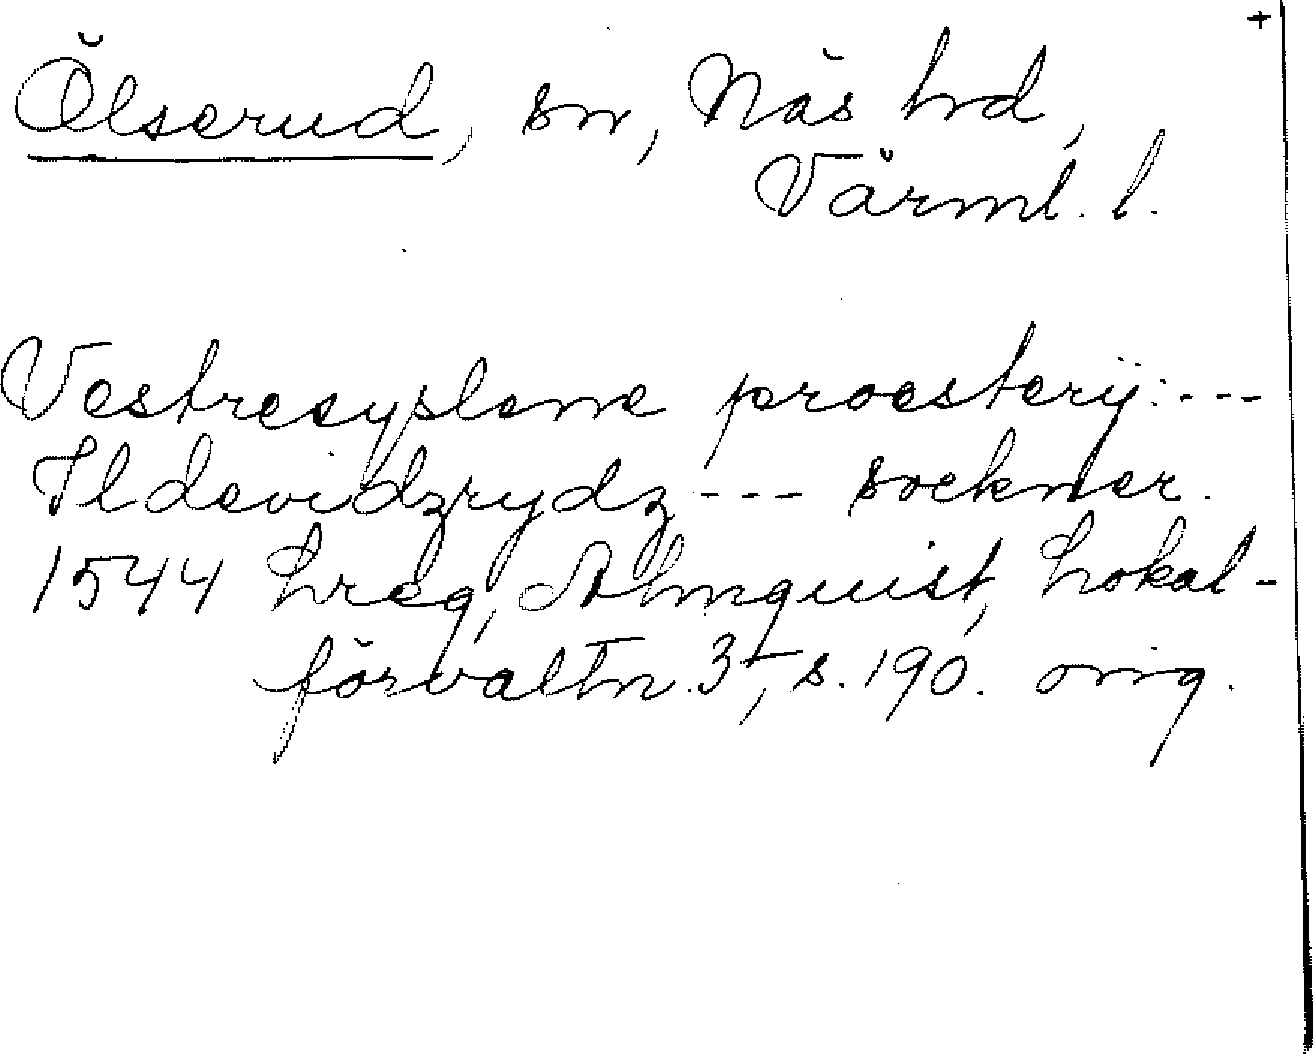 +
Ölserud, sn, Näs hd,
Värml. l.
Vestresyslene proesterij: ---
Ildevidzrydz --- sockner.
1544 Lreg, Almquist, Lokal-
förvaltn. 3, s. 190. orig.